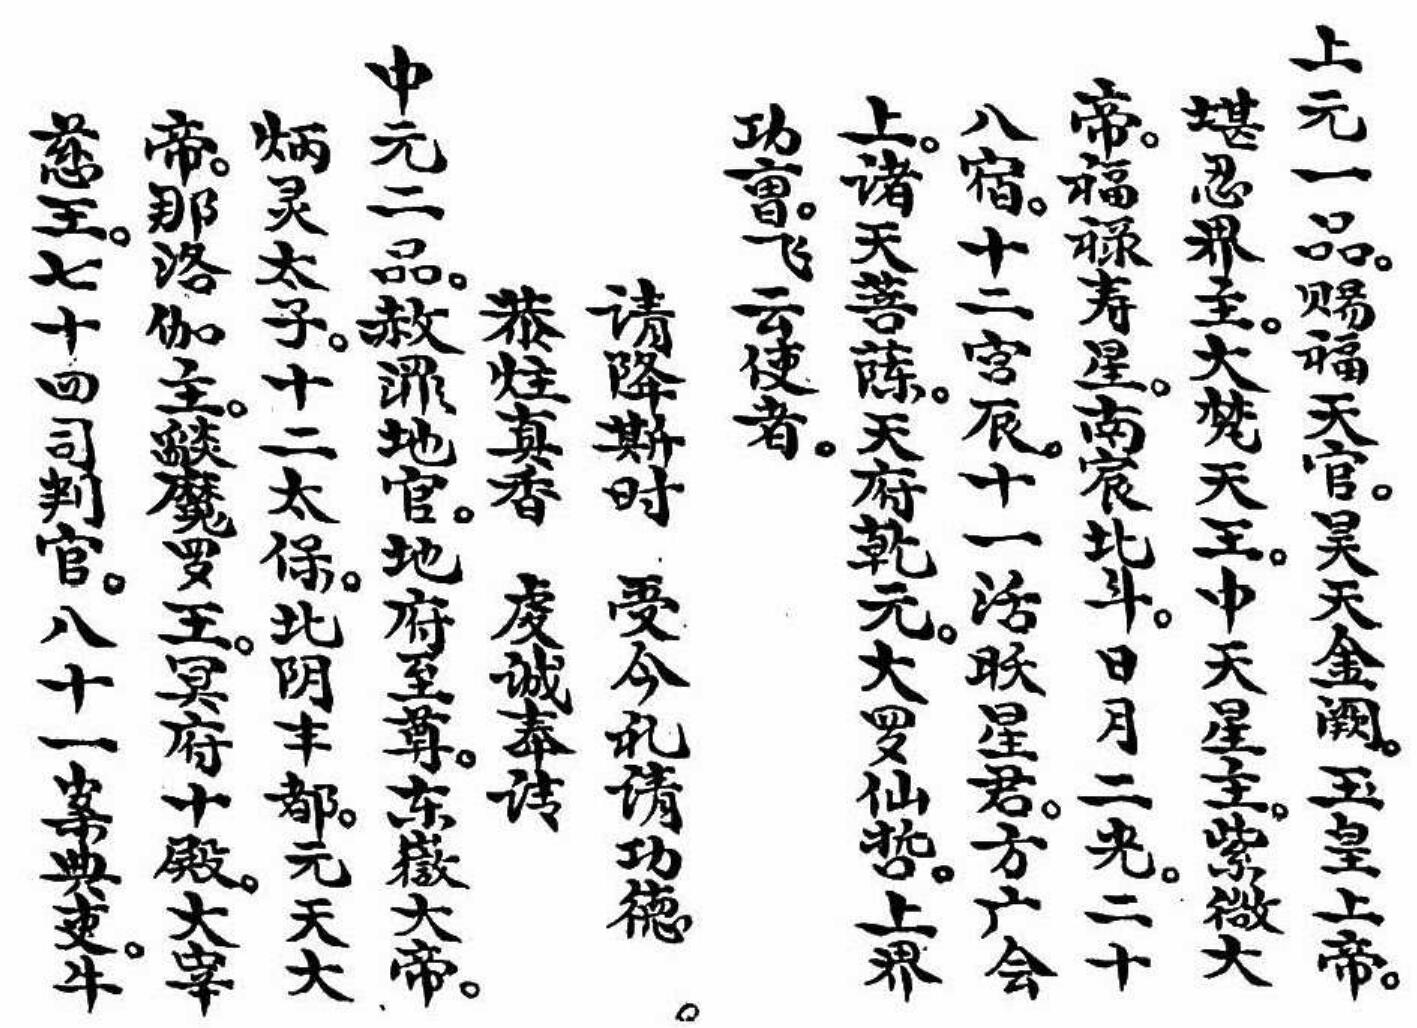 上元一品。赐福天官。昊天金阙。玉皇上帝。
堪忍界主。大梵天王。中天星主。紫微大
帝。福禄寿星。南宸北斗。日月二光。二十
八宿。十二宫辰。十一活眃星君。方广会
上。诸天菩萨。天府乾元。大罗仙哲。上界
功曹。飞云使者。
请降斯时 受今礼请功德。
恭炷真香 虔诚奉请
中元二品。赦罪地官。地府至尊。东嶽大帝。
炳灵太子。十二太保。北阴丰都。元天大
帝。那洛伽主。燄魔罗王。冥府十殿。大宰
慈王。七十四司判官。八十一案典吏。牛